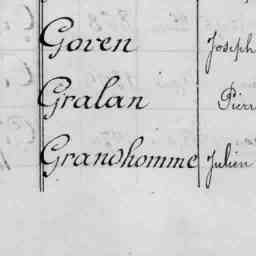 Goven Joseph
Gralan
Grandhomme Julien